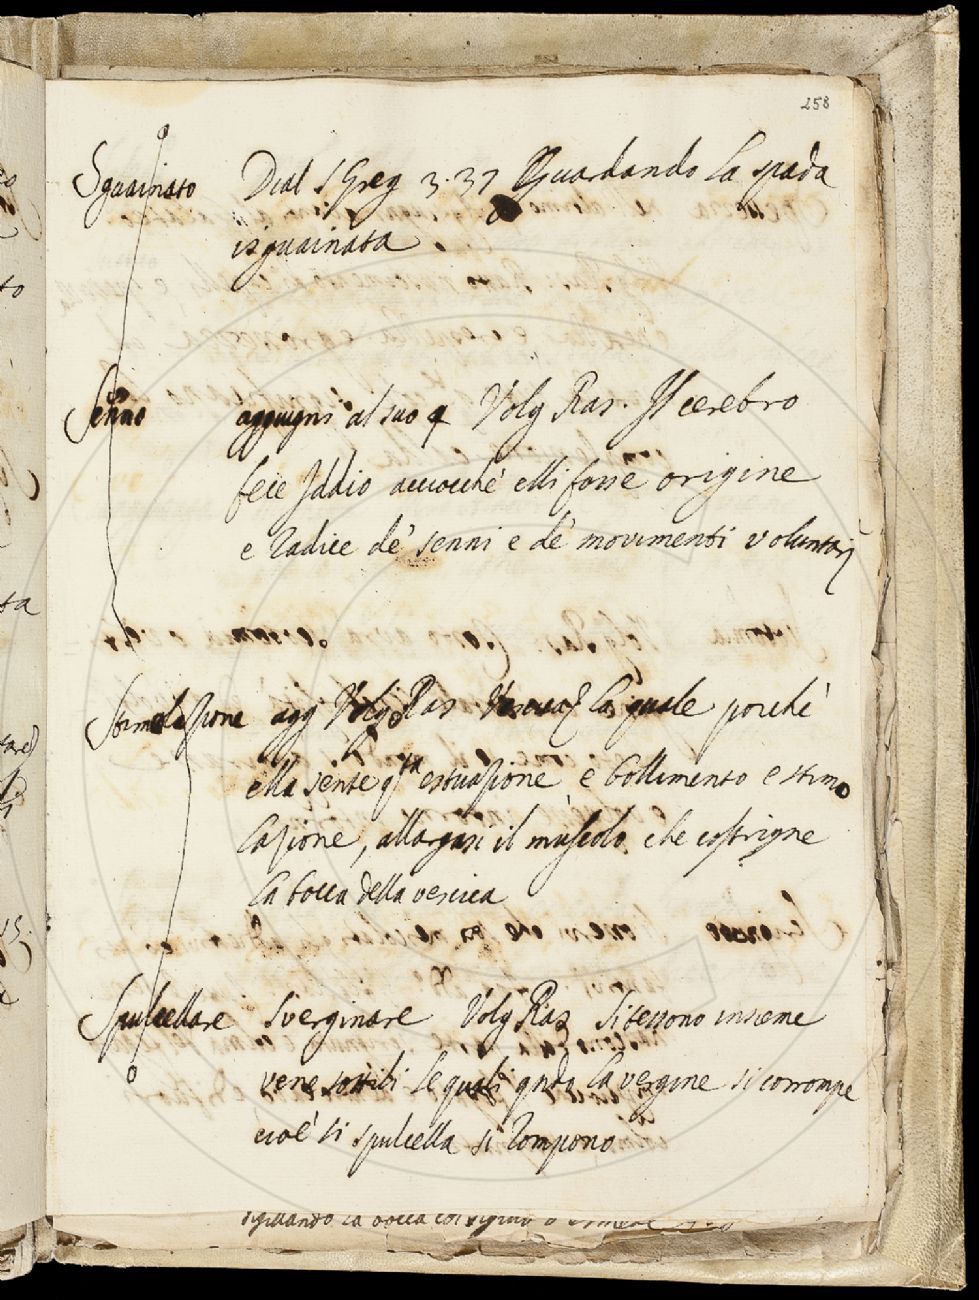 258
Sguainato Dial S Greg 3.37 Guardando la spada
isguainata
Senno aggiugni al suo § Volg Ras. Il cerebro
fece Iddio acciocchè elli fosse origine
e radice de' senni e de' movimenti voluntarj
Stimolazione agg Volg Ras Vescica la quale poichè
ella sente qsta estuazione e bollimento e stimo
lazione, allargasi il muscolo che costrigne
la bocca della vescica
Spulcellare Sverginare Volg Ras Si tessono insieme
vene sottili le quali qndo la vergine si corrompe
cioè si spulcella si rompono